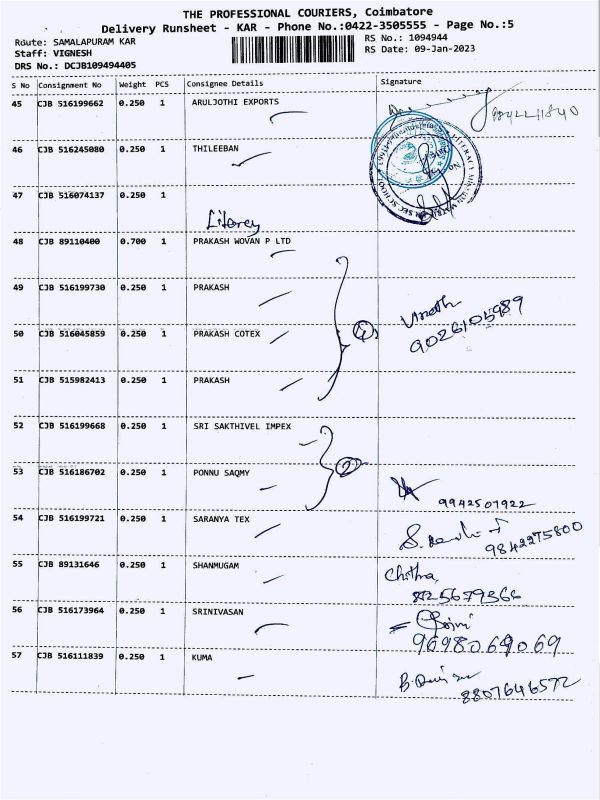 THE PROFESSIONAL COURIERS, Coimbatore
Delivery Runsheet - KAR - Phone No.:0422-3505555 - Page No.:5
Route: SAMALAPURAM KAR
RS No.: 1094944
Staff: VIGNESH
RS Date: 09-Jan-2023
DRS No.: DCJB109494405
S No Consignment No Weight PCS Consignee Details Signature
45 CJB 516199662 0.250 1 ARULJOTHI EXPORTS
46 CJB 516245080 0.250 1 THILEEBAN
47 CJB 516074137 0.250 1
Literey
48 CJB 89110400 0.700 1 PRAKASH WOVAN P LTD
49 CJB 516199730 0.250 1 PRAKASH
4
9026105989
50 CJB 516045859 0.250 1 PRAKASH COTEX
51 CJB 515982413 0.250 1 PRAKASH
52 CJB 516199668 0.250 1 SRI SAKTHIVEL IMPEX
2
53 CJB 516186702 0.250 1 PONNU SAQMY
9942507922
54 CJB 516199721 0.250 1 SARANYA TEX
9842275800
55 CJB 89131646 0.250 1 SHANMUGAM Chithra
56 CJB 516173964 0.250 1 SRINIVASAN
9698069069
57 CJB 516111839 0.250 1 KUMA
8807646572